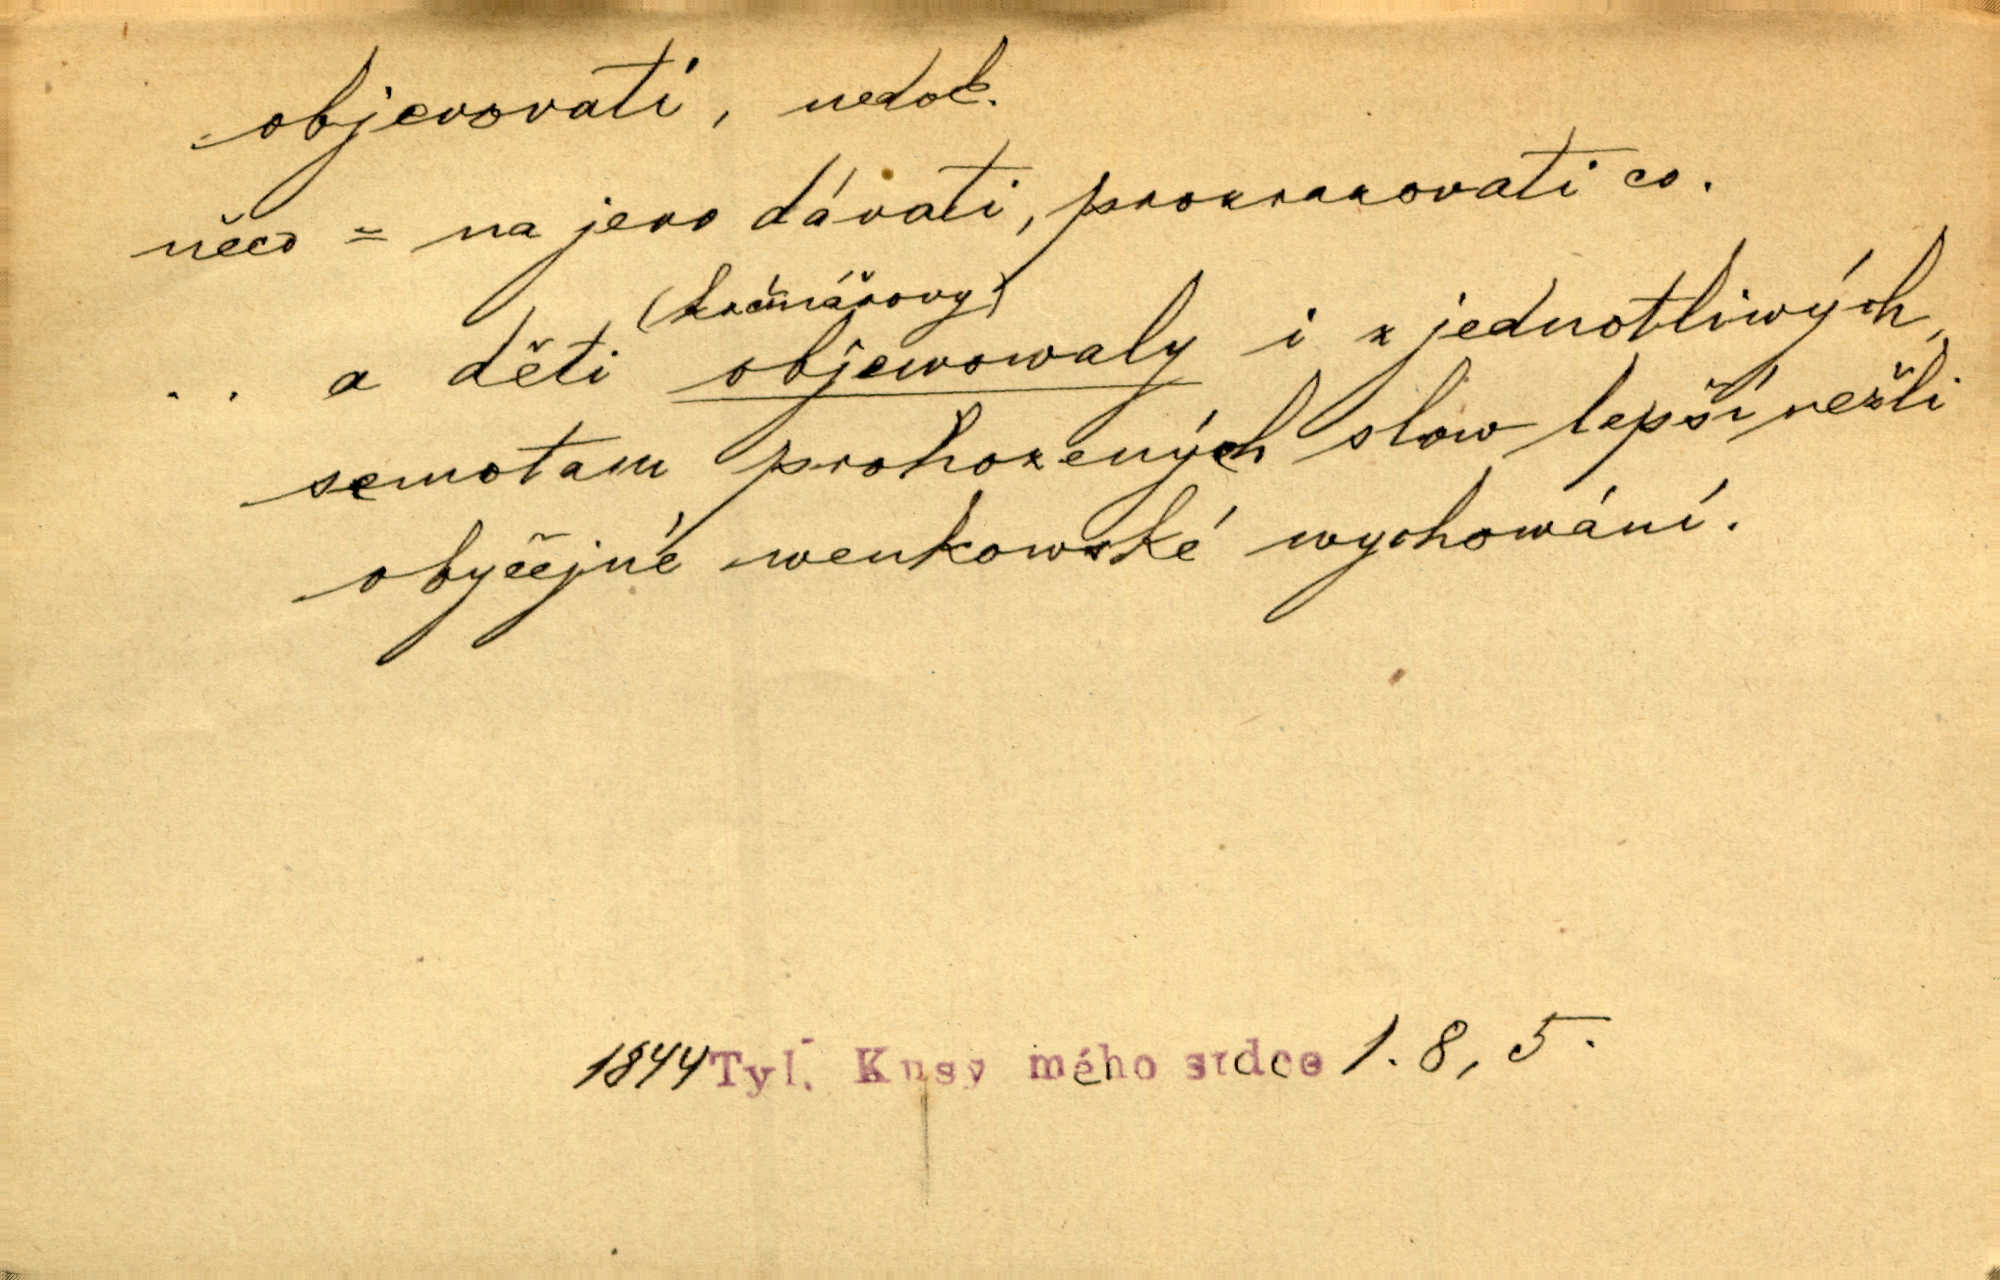 objevovati, nedok.
něco = na jevo dávati, prozrazovati co.
(krčmářovy)
. . a děti objewowaly i z jednotliwých,
semotam prohozených slow lepší nežli
obyčejné wenkowské wychowání.
1844 Tyl. Kusy mého srdce 1. 8, 5.